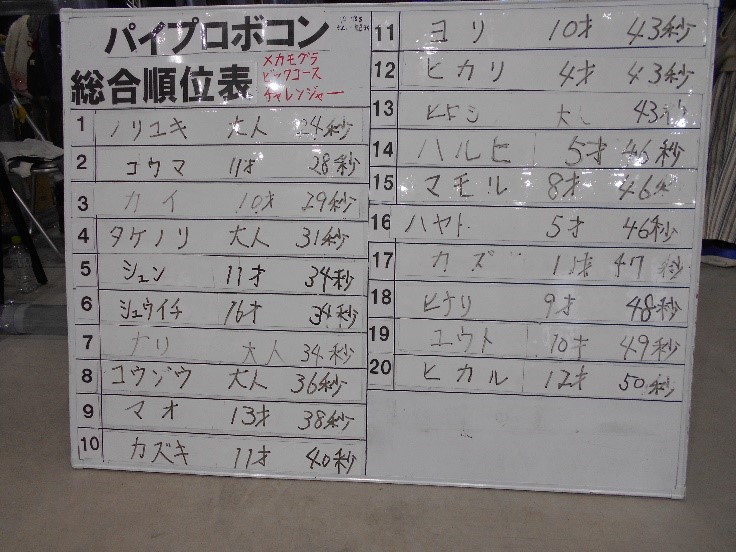 パイプロボコン
総合順位表
メカモグラ
ビックコース
チャレンジャー
1 ノリユキ 大人 24秒
2 コウマ 11才 28秒
3 カイ 10才 29秒
4 タケノリ 大人 31秒
5 シュン 11才 34秒
6 シュウイチ 16才 34秒
7 ナリ 大人 34秒
8 コウゾウ 大人 36秒
9 マオ 13才 38秒
10 カズキ 11才 40秒
11 ヨリ 10才 43秒
12 ヒカリ 4才 43秒
13 43秒
14 ハルヒ 5才 46秒
15 マモル 8才 46秒
16 ハヤト 5才 46秒
17 カズ 11才 47秒
18 9才 48秒
19 ユウト 10才 49秒
20 ヒカル 12才 50秒